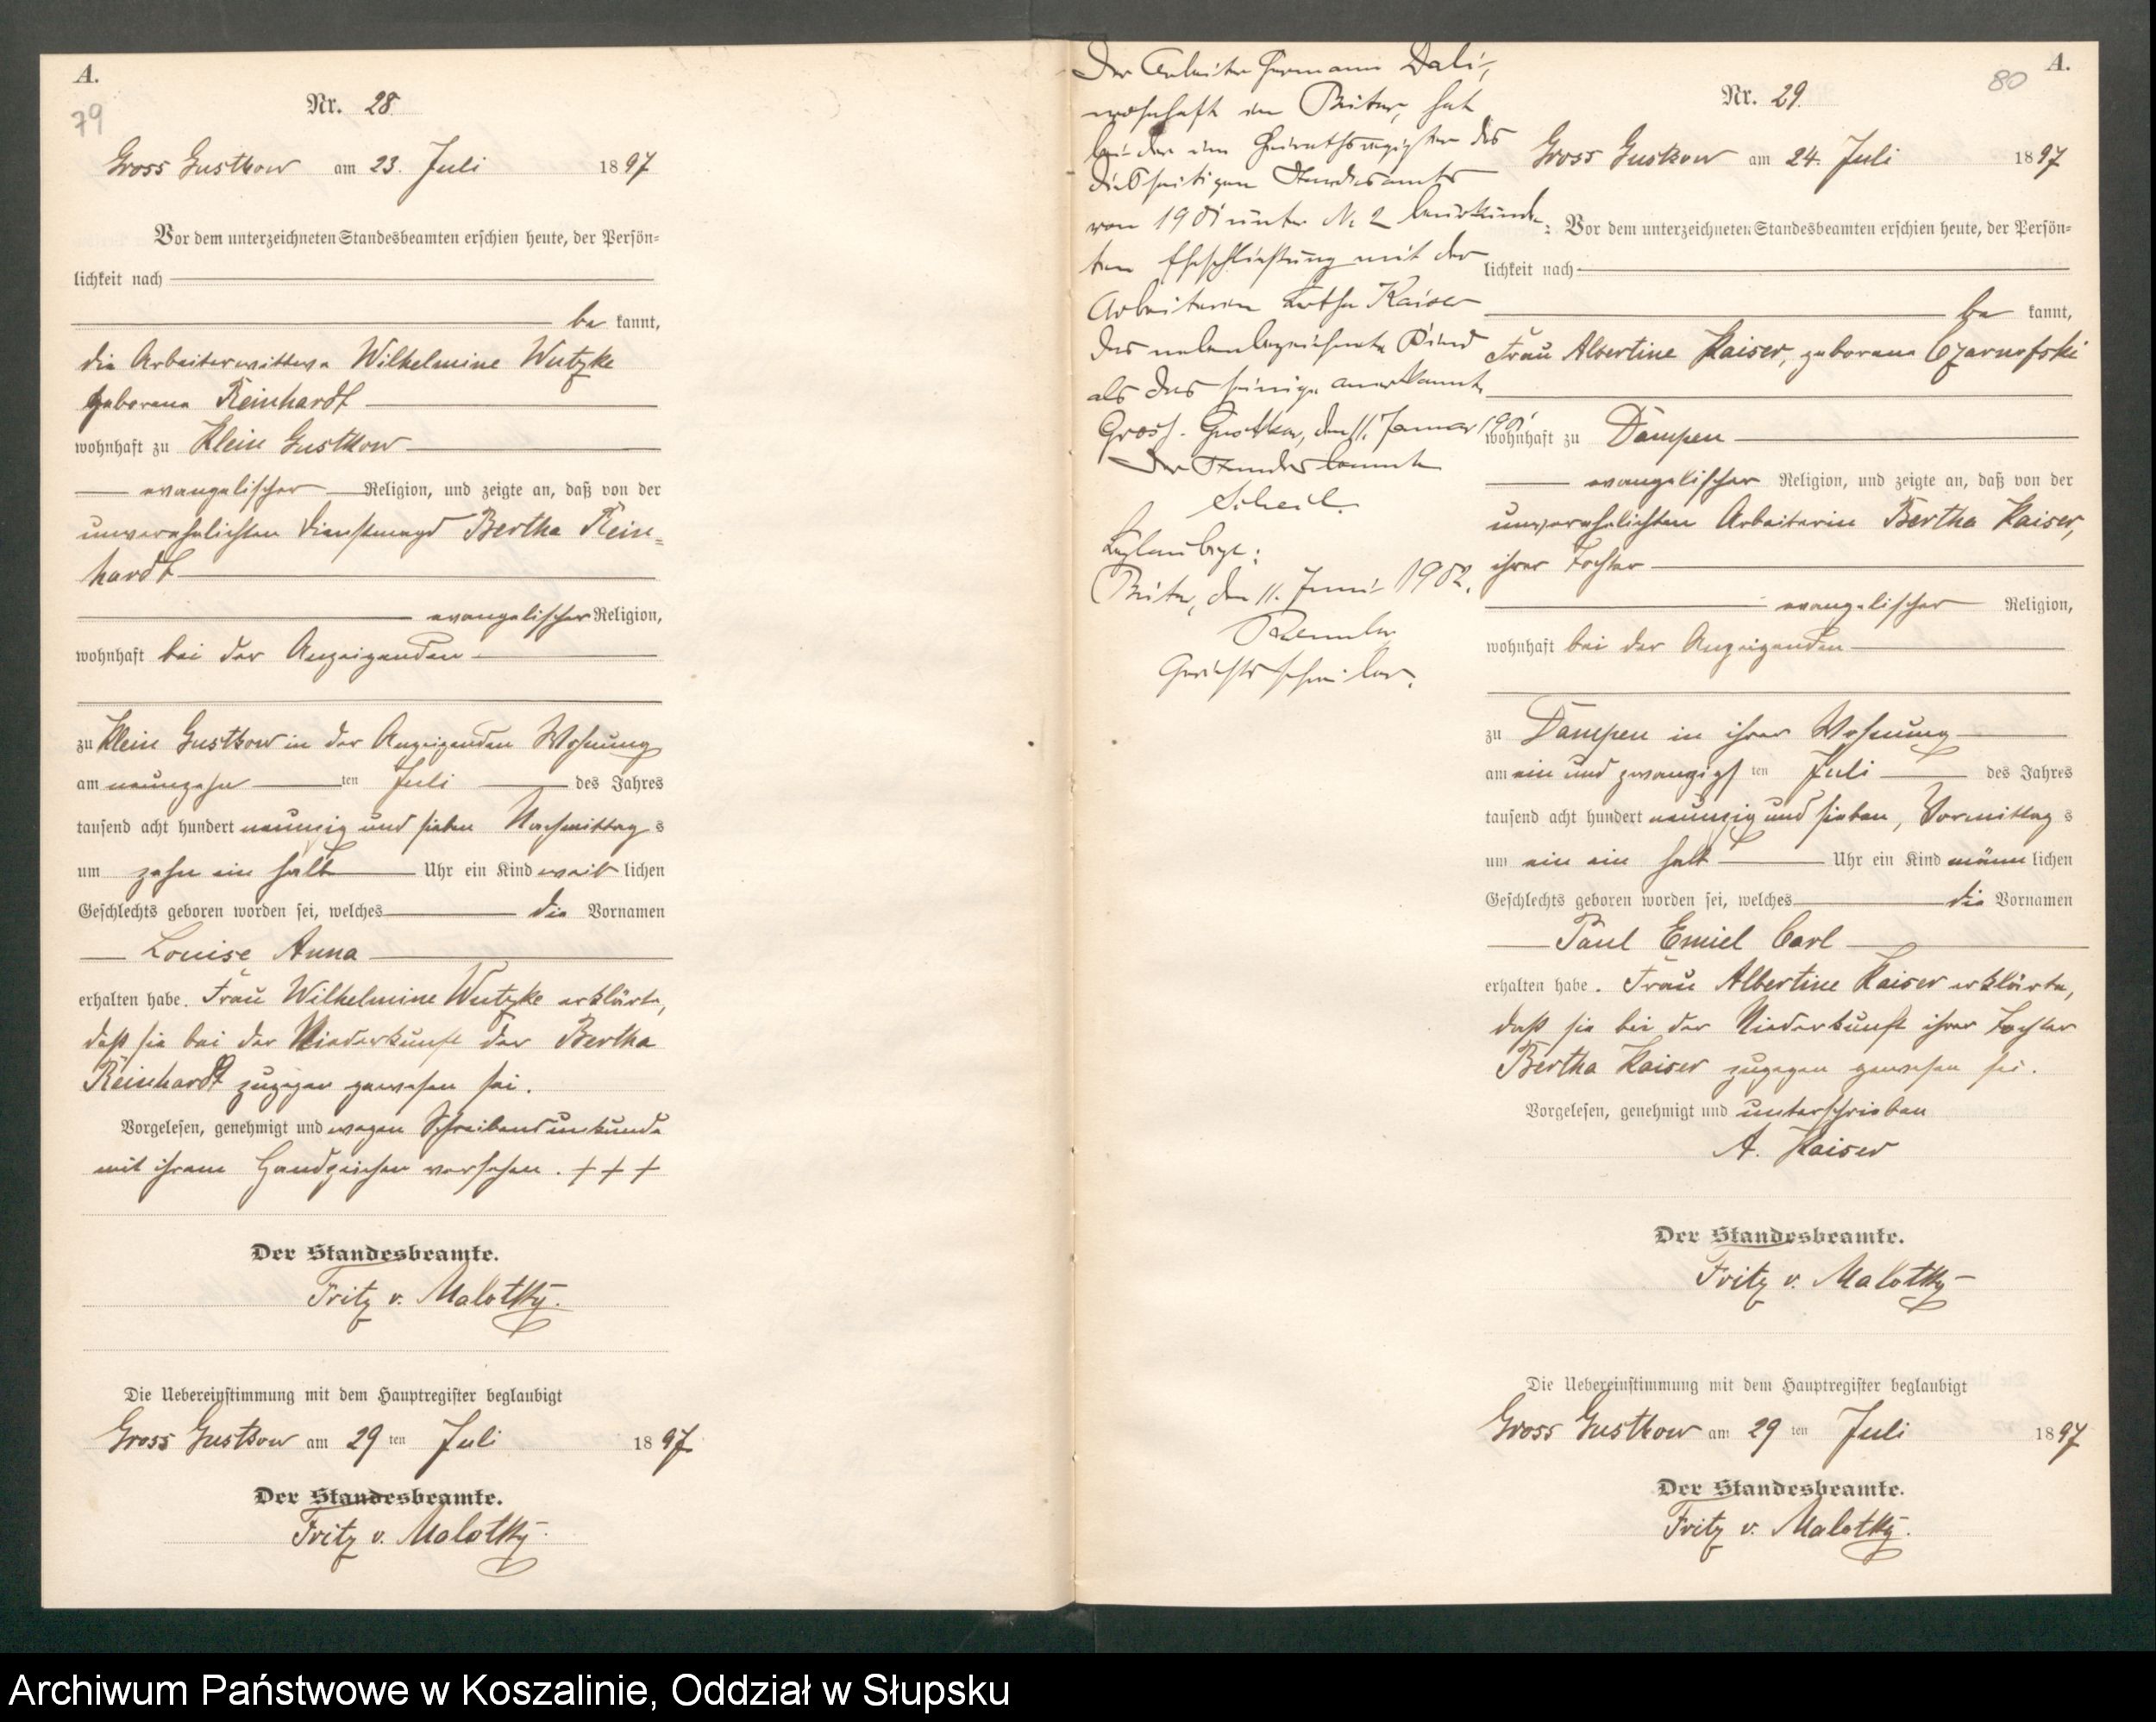 A.
79
Nr. 28.
Gross Gustkow am 23. Juli 1897
Vor dem unterzeichneten Standesbeamten erschien heute, der Persön=
lichkeit nach
be kannt,
die Arbeiterwittwe Wilhelmine Wutzke
geborene Reinhardt
wohnhaft zu Klein Gustkow
evangelischer Religion, und zeigte an, daß von der
unverehelichten Dienstmagd Bertha Rein=
hardt
evangelischer Religion,
wohnhaft bei der Anzeigenden
zu Klein Gustkow in der Anzeigenden Wohnung
am neunzehn ten Juli des Jahres
tausend acht hundert neunzig und sieben Nachmittag s
um zehn ein halb Uhr ein Kind weib lichen
Geschlechts geboren worden sei, welches die Vornamen
Louise Anna
erhalten habe. Frau Wilhelmine Wutzke erklärte,
daß sie bei der Niederkunft der Bertha
Reinhardt zugegen gewesen sei.
Vorgelesen, genehmigt und wegen Schreibensunkunde
mit ihrem Handzeichen versehen. + + +
Der Standesbeamte.
Fritz v. Malottky.
Die Uebereinstimmung mit dem Hauptregister beglaubigt
Gross Gustkow am 29 ten Juli 1897
Der Standesbeamte.
Fritz v. Malottky.
Der Arbeiter Hermann
wohnhaft in hat
bei der im Heirathsregister des
diesseitigen Standesamts
von 1901 unter No 2 beurkunde-
ten Eheschließung mit der
Arbeiterin Bertha Kaiser
das nebenbezeichnete Kind
als das seinige anerkannt.
Gross-Gustkow, den 11. Januar 1901
Der Standesbeamte
Scheil.
Beglaubigt:
den 11. Juni 1902.
Gerichtsschreiber.
A.
80
Nr. 29.
Gross Guskow am 24. Juli 1897
Vor dem unterzeichneten Standesbeamten erschien heute, der Persön=
lichkeit nach
be kannt,
Frau Albertine Kaiser, geborene Czarnofski
wohnhaft zu Dampen
evangelischer Religion, und zeigte an, daß von der
unverehelichten Arbeiterin Bertha Kaiser,
ihrer Tochter
evangelischer Religion,
wohnhaft bei der Anzeigenden
zu Dampen in ihrer Wohnung
am ein und zwanzigs ten Juli des Jahres
tausend acht hundert neunzig und sieben, Vormittag s
um ein ein halb Uhr ein Kind männ lichen
Geschlechts geboren worden sei, welches die Vornamen
Paul Emiel Carl
erhalten habe. Frau Albertine Kaiser erklärte,
daß sie bei der Niederkunft ihrer Tochter
Bertha Kaiser zugegen gewesen sei.
Vorgelesen, genehmigt und unterschrieben
A. Kaiser
Der Standesbeamte.
Fritz v. Malottky
Die Uebereinstimmung mit dem Hauptregister beglaubigt
Gross Gustkow am 29 ten Juli 1897
Der Standesbeamte.
Fritz v. Malottky.
Archiwum Państwowe w Koszalinie, Oddział w Słupsku